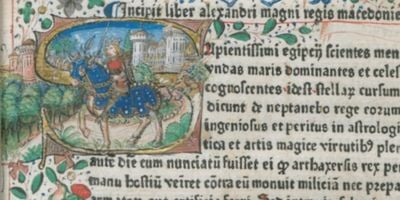 Incipit liber alexandri magni regis macedonie
Sapientissimi egipcij scientes men
suram terre vndas maris dominantes et celes
cognoscentes id est stellarum cursum
dicunt de neptanebo rege eorum
ingeniosus et peritus in astrologi
tica et artis magice virtutibꝰ plen
die cum nunciatū fuisset ei ꝙ archaxersis rex per
manu hostiū veiret cōtra eū monuit miliciā nec prepa